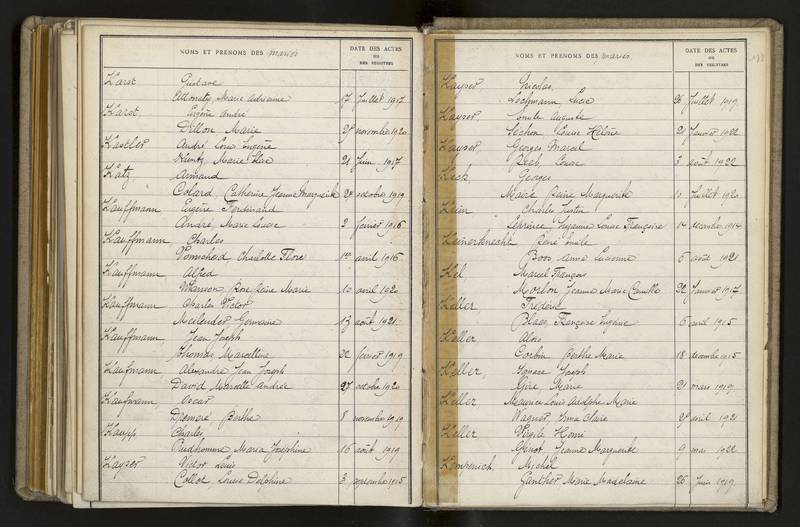 NOMS ET PRÉNOMS DES mariés DATE DES ACTES
OU
DES REGISTRES
Karst Gustave
Marie Adrienne 17 juillet 1917
Karst, Eugène André
Dillon Marie 27 novembre 1920
Kastler André Louis Eugène
Kuntz, Marie 21 juin 1917
Katz, Armand
Colard, Catherine Jeanne Marguerite 28 octobre 1919
Kauffmann Eugène Ferdinand
André, Marie Louise 3 février 1916
Kauffmann, Charles
Charlotte Flore 14 avril 1916
Kauffmann Alfred
Rose Claire Marie 10 avril 1920
Kauffmann Charles Victor
Meilender Germaine 13 août 1921
Kauffmann Jean Joseph
Thomas Marcelline 22 février 1919
Kaufmann, Alexandre Jean Joseph
David Marcelle Andrée 27 octobre 1920
Kaufmann, Oscar
Demaré, Berthe 8 novembre 1919
Kaupp Charles
Prudhomme Maria Joséphine 16 août 1919
Kayser Victor Louis
Collot, Louise Delphine 3 septembre 1915
NOMS ET PRÉNOMS DES mariés DATE DES ACTES
OU
DES REGISTRES
Kayser, Nicolas
Lochmann Lucie 26 juillet 1919
Kayser, Emile Auguste
Louise Hélène 21 janvier 1922
Kayser, Georges Marcel
Louise 3 août 1922
Keck, Georges
Maire Reine Marguerite 10 juillet 1920
Kein Charles Justin
Leprince, Suzanne Louise Françoise 14 décembre 1914
Keinerknecht, René Emile
Boos Anna Lucienne 6 août 1921
Kel Marcel François
Morlon Jeanne Marie Camille 22 janvier 1917
Keller, Frédéric
Françoise Eugénie 6 avril 1915
Keller Aloïs
Corbin Berthe Marie 18 décembre 1915
Keller, Ignace Joseph
Gire Marie 21 mars 1919
Keller Maurice Louis Adolphe Marie
Wagner, Irma Claire 28 avril 1921
Keller Virgile Henri
Génot, Jeanne Marguerite 9 mai 1922
Kempenich, Michel
Gunther Marie Madelaine 26 juin 1919